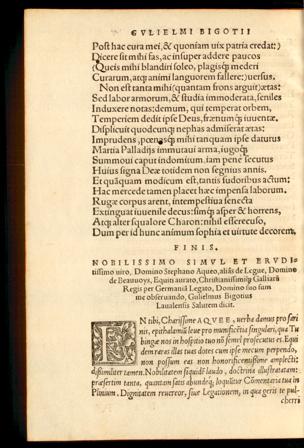 GVLIELMI BIGOTII
Post hac cura mei, & quoniam uix patria credat:)
Dicere sit mihi fas, ac insuper addere paucos
(Queis mihi blandiri soleo, plagisq; mederi
Curarum, atq; animi languorem fallere:) uersus.
Non est tanta mihi (quantam frons arguit) ætas:
Sed labor armorum, & studia immoderata, seniles
Induxere notas: demum, qui temperat orbem,
Temperiem dedit ipse Deus, frænumq; iuuentæ.
Displicuit quodcunq; nephas admiserat ætas:
Imprudens, pœnasq; mihi tanquam ipse daturus
Martia Palladijs immutaui arma, iugoq;
Summoui caput indomitum, iam pene secutus
Huius signa Deæ totidem non segnius annis.
Et quãquam modicum est, tantis sudoribus actum:
Hac mercede tamen placet hæc impensa laborum.
Rugæ corpus arent, intempestiua senecta
Extinguat iuuenile decus: sim q; asper & horrens,
Atq; alter squalore Charon: nihil effereĩcuso,
Dum per id hunc animum sophia et uirtute decorem.
FINIS.
NOBILISSIMO SIMVL ET ERVDI
tissimo uiro, Domino Stephano Aqueo, aliâs de Legue, Domino
de Beauuoys, Equiti aurato, Christianissimiq; Galliarũ
Regis per Germaniã Legato, Domino suo sum
me obseruando, Gulielmus Bigotius
Lauallensis Salutem dicit.
EN tibi, Charissime AQVEE, uerba damus pro fari
nis, epithalamiũ leue pro munificẽtia singulari, qua Tu
bingæ nos in hospitio tuo nõ semel prosecutus es. Equi
dem raras illas tuas dotes cum ipse mecum perpendo,
non possum eas non honorificentissime amplecti:
dissimiliter tamen. Nobilitatem siquidẽ laudo, doctrinã illustratatam:
præsertim tanta, quantam satis abundeq; loquitur Cõmentaria tua in
Plinium. Dignitatem reuereor, siue Legationem, in qua geris te pul-
cherri